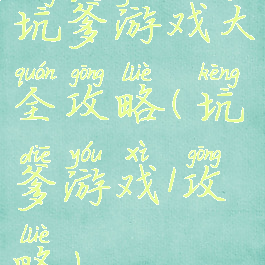 坑爹游戏大
quán gōng lüè kēng
全攻略(坑
diē yóu xì gōng
爹游戏/攻
lüè
略)